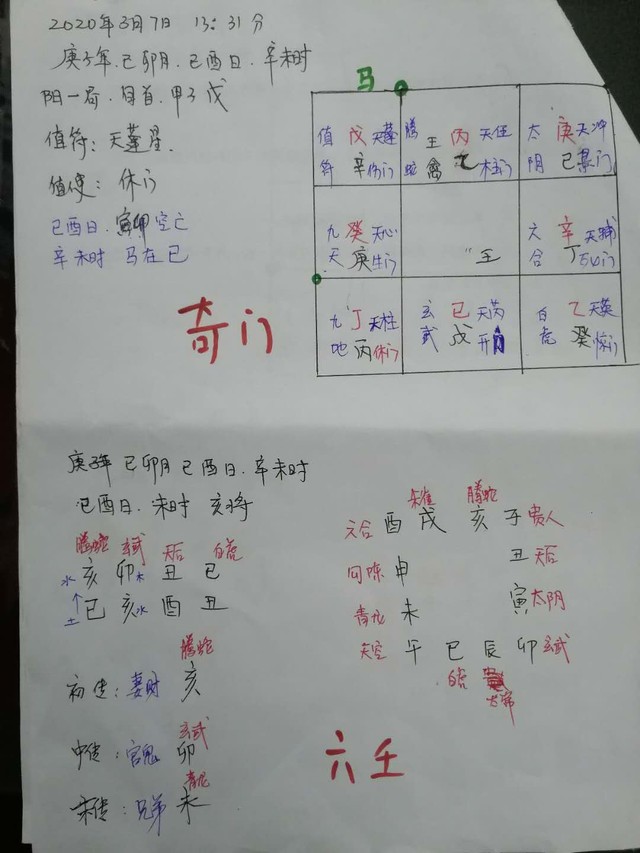 2020年3月7日 13:31分
庚子年.己卯月.己酉日.辛未时
阳一局.旬首.甲子戊
值符:天蓬星.
值使:休门
己酉日.寅卯空亡
辛未时 马在巳
奇门
马
值 戊 天蓬 符 辛 伤门
腾 壬 丙 天任 蛇 禽 乙 杜门
太 庚 天冲 阴 己 景门
九 癸 天心 天 庚 生门
壬
六 辛 天辅 合 丁 死门
九 丁 天柱 地 丙 休门
玄 己 天芮 武 戊 开门
白 乙 天英 虎 癸 惊门
庚子年 己卯月 己酉日.辛未时
己酉日.未时 亥将
腾蛇 玄武 天后 白虎
水 亥 卯 木 丑 巳
↑
土 己 亥 水 酉 丑
腾蛇
初传:妻财 亥
玄武
中传:官鬼 卯
青龙
末传:兄弟 未
朱雀 腾蛇
六合 酉 戌 亥 子 贵人
勾陈 申 丑 天后
青龙 未 寅 太阴
天空 午 巳 辰 卯 玄武
白虎 太常
六壬